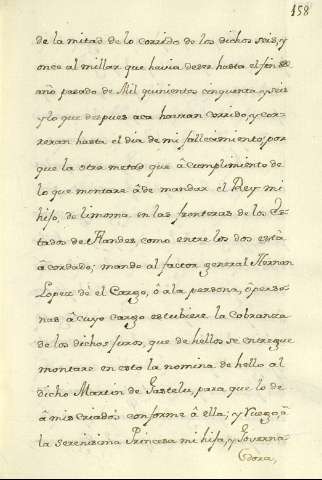 158
de la mitad de lo corrido de los dichos seis, y
once al millar que havia desde hasta el fin de
año pasado de Mil quinientos cinquenta y seis
y lo que despues aca havran corrido y cor-
reran hasta el dia de mi fallecimiento; por
que la otra metad que â cumplimiento de
lo que montare âde mandar el Rey mi
hijo, de limosna en las fronteras de los Es-
tados de Flandes, como entre los dos está
âcordado; mando al factor general Hernan
Lopez de el Campo, ô á la persona, ô perso-
nas â cuyo cargo estubiere la cobranza
de los dichos juros, que de hellos se entregue
montare en esto la nomina de hello al
dicho Martin de Gastelu, para que lo de
â mis criados conforme â ella; y Ruego, â
la serenisima Princesa mi hija, y Governa-
dora,